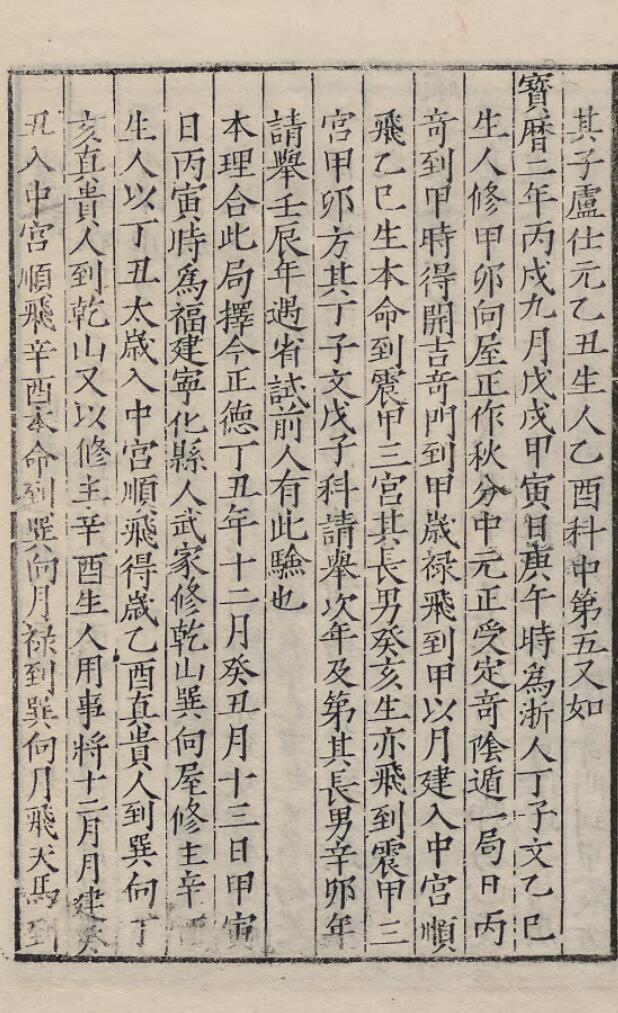 其子盧仕元乙丑生人乙酉科中第五又如
寶曆二年丙戌九月戊戌甲寅日庚午時為浙人丁子文乙巳
生人修甲卯向屋正作秋分中元正受定竒陰遁一局日丙
竒到甲時得開吉竒門到甲歲禄飛到甲以月建入中宮順
飛乙巳生本命到震甲三宮其長男癸亥生亦飛到震甲三
宮甲卯方其丁子文戊子科請舉次年及第其長男辛卯年
請舉壬辰年遇省試前人有此驗也
本理合此局擇今正德丁丑年十二月癸丑月十三日甲寅
日丙寅時為福建寧化縣人武家修乾山巽向屋修主辛
生人以丁丑太歲入中宮順飛得歲乙酉真貴人到巽向丁
亥真貴人到乾山又以修主辛酉生人用事將十二月月建癸
丑入中宮順飛辛酉本命到巽向月禄到巽向月飛天馬到